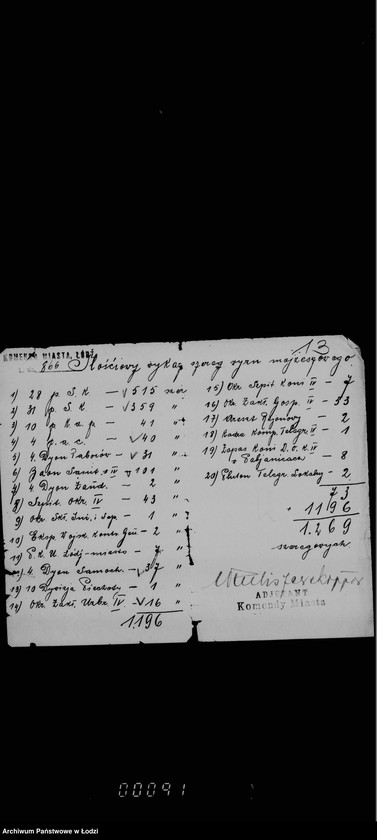 13
KOMENDA MIASTA ŁÓDŹ
866 Ilościowy wykaz szereg. wyzn. mojżeszowego
1) 28 p. S. K. — √515 szer.
2) 31 p. S. K. — √359 "
3) 10 p. k. a. p. — 41 "
4) 4 p. a. c. — √40 "
5) 4. Dyon Taborów — √31 "
6) Baon Sanit. IV √101 "
7) 4 Dyon Żand. — 2 "
8) Szpit. Okr. IV — 43 "
9) Okr. Skł. Inż. i Sap. — 1 "
10) Eksp. Wojsk. Kontr. Gen — 2 "
11) P. K. U. Łódź-miasto — 7 "
12) 4. Dyon Samoch. — √37 "
13) 10 Dywizja Piechoty — 1 "
14) Okr. Zakł. Umd. IV — √16 "
1196
15) Okr. Szpit. Koni IV — 7
16) Okr. Zakł. Gosp. IV — 53
17) Areszt Rejonowy — 2
18) Kadra Komp. Telegr. IV — 1
19) Zapas Koni D. O. K. IV
w Pabjanicach — 8
20) Pluton Telegr. Lokalny — 2
73
1196
1.269
szeregowych
ADJUTANT
Komendy Miasta
00091
Archiwum Państwowe w Łodzi